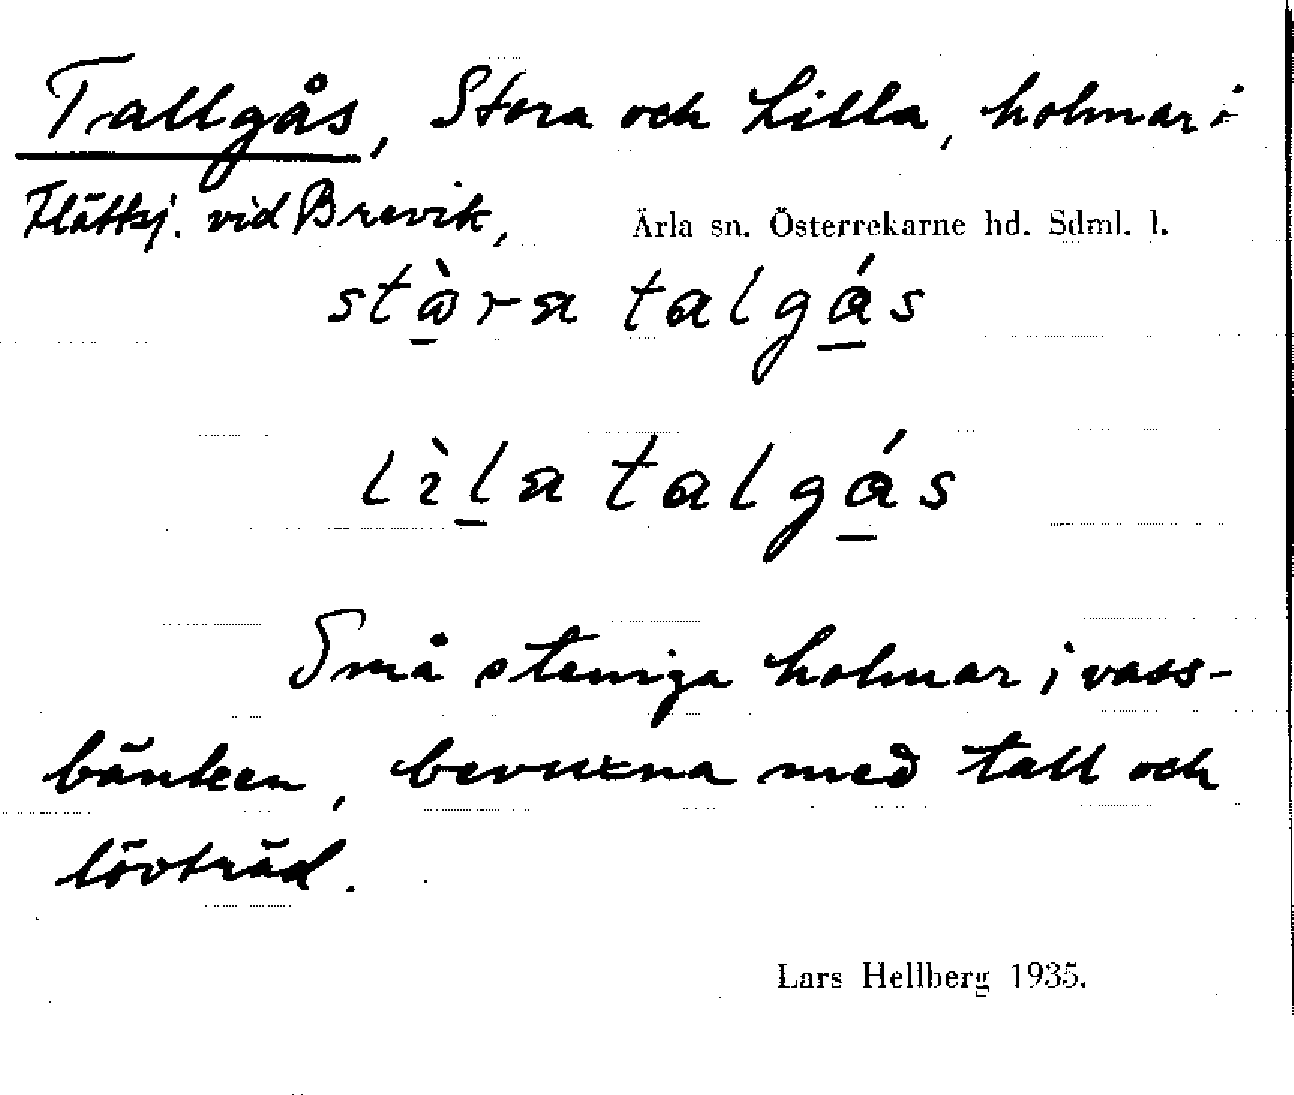 Tallgås, Stora och Lilla, holmar i
Flättkj. vid Brevik,
Ärla sn. Österrekarne hd. Sdml. l.
stòra talgás
lìla talgás
Små steniga holmar i vass-
bänken, bevuxna med tall och
lövträd.
Lars Hellberg 1935.